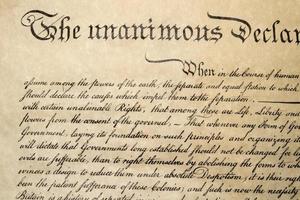 The unanimous Declar
When in the Course of human
assume among the powers of the earth, the separate and equal station to which
should declare the causes which impel them to the separation.
with certain unalienable Rights, that among these are Life, Liberty and
powers from the consent of the governed, — That whenever any Form of Go
Government, laying its foundation on such principles and organizing it
will dictate that Governments long established should not be changed for
evils are sufferable, than to right themselves by abolishing the forms to wh
evinces a design to reduce them under absolute Despotism, it is their righ
been the patient sufferance of these Colonies; and such is now the necessity
Britain is a history of repeated